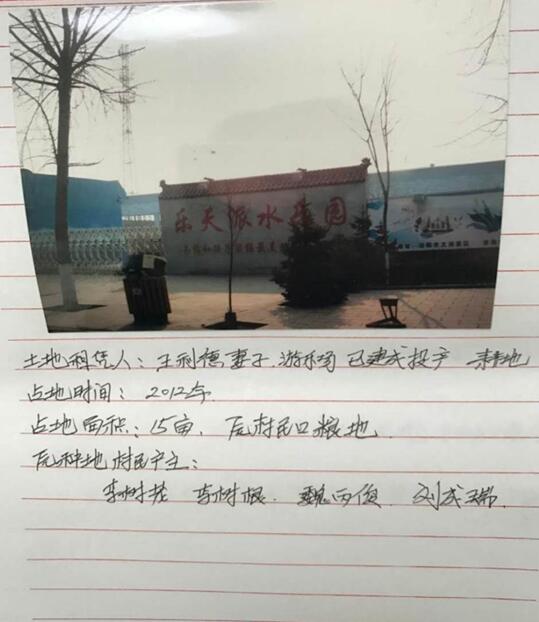 乐天派水乐园
土地租赁人：王利德妻子.游乐场已建成投产 耕地
占地时间：2012年.
占地面积：15亩，原村民口粮地.
原种地村民户主：
李树茂 李树根. 魏丙俊. 刘成瑞.